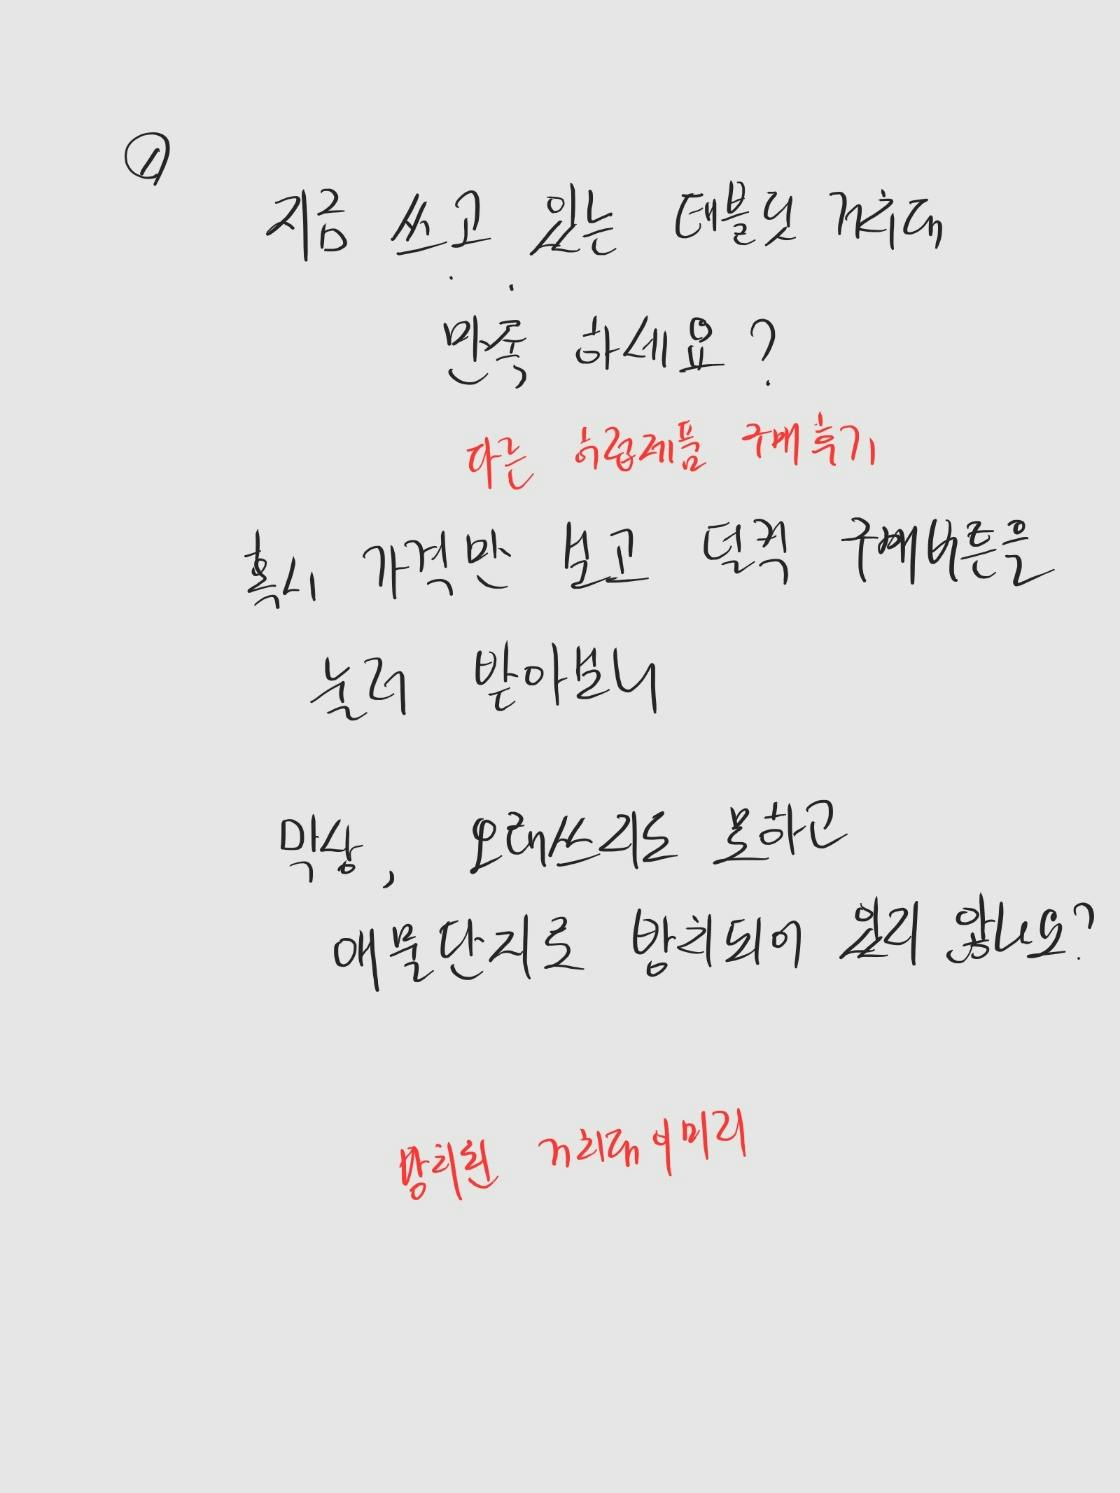 ①
지금 쓰고 있는 태블릿 거치대
만족 하세요?
다른 허접제품 구매후기
혹시 가격만 보고 덜컥 구매버튼을
눌러 받아보니
막상, 오래쓰지도 못하고
애물단지로 방치되어 있지 않나요?
방치된 거치대 이미지